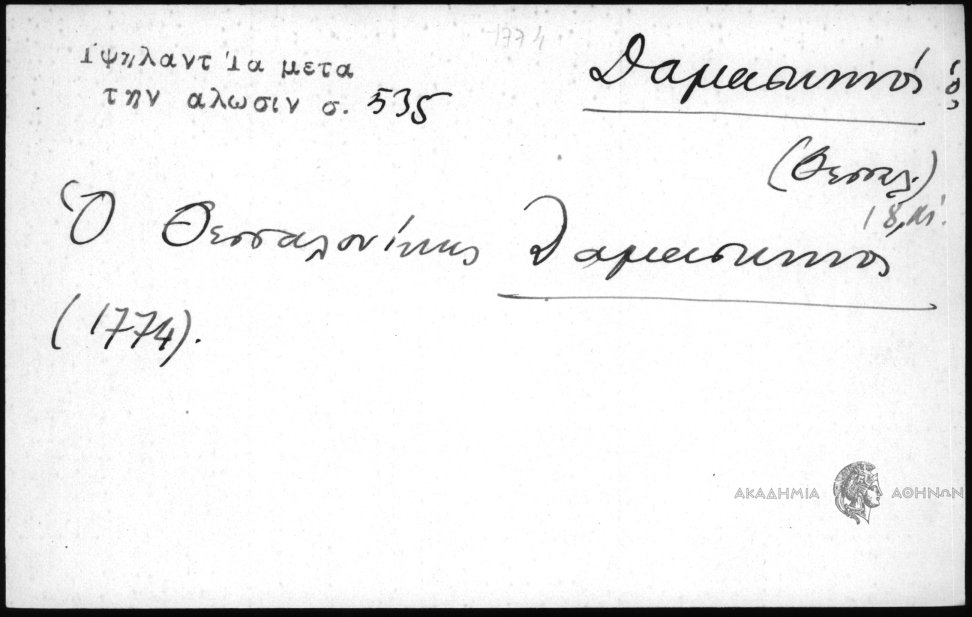 1774
Ὑψηλαντ Ἱα μετα
την αλωσιν σ. 535
Δαμασκηνός ὁ
(Θεσσαλ.)
18 αἰ.
Ὁ Θεσσαλονίκης Δαμασκηνός
(1774).
ΑΚΑΔΗΜΙΑ ΑΘΗΝΩΝ